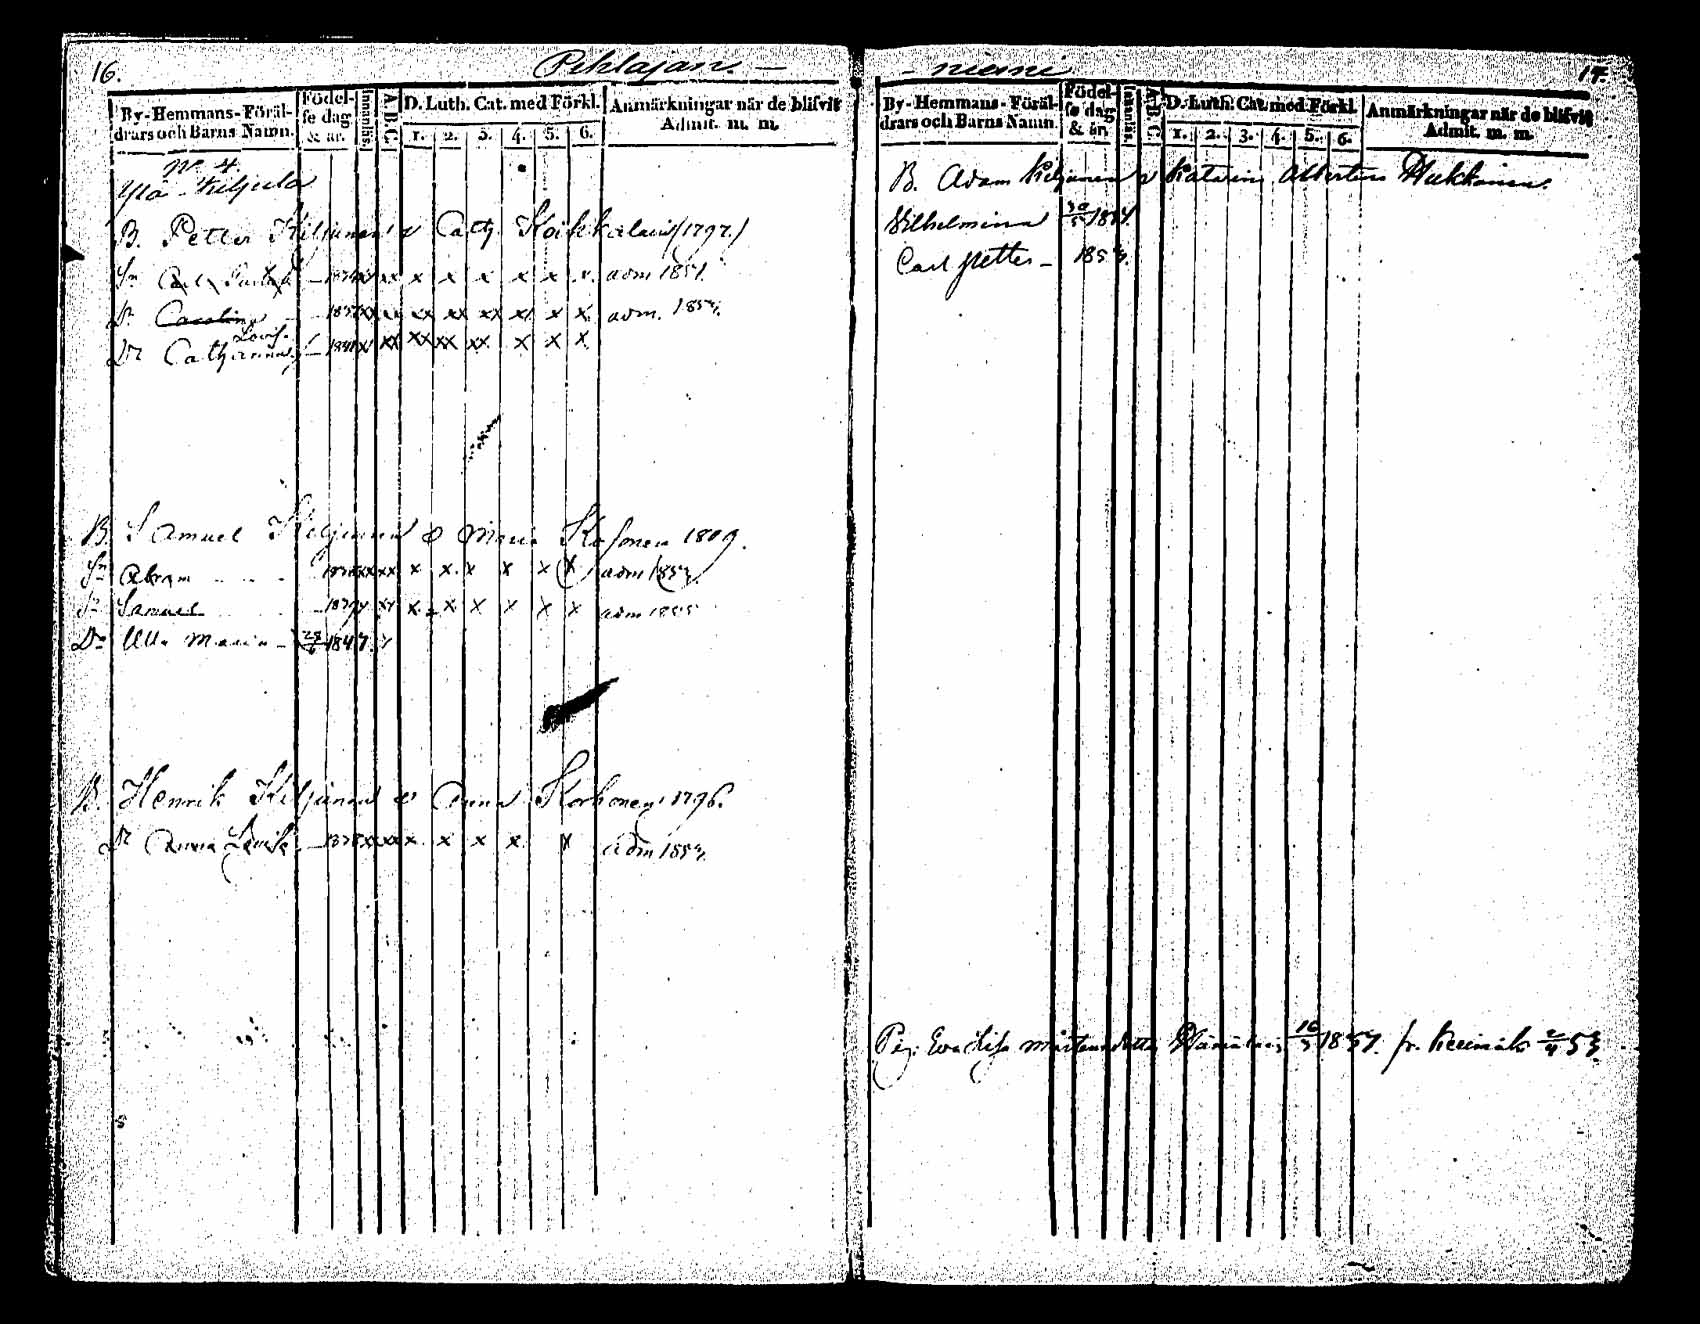 16.
Pihlajan. —
By-Hemmans-Föräl-
drars och Barns Namn.
Födel-
se dag
& år.
Innanläs.
A.B.C.
D. Luth. Cat. med Förkl.
1. 2. 3. 4. 5. 6.
Anmärkningar när de blifvit
Admit. m. m.
No 4.
Ylä-Kiljula
B. Petter Kiljunen & Cath. Koikkalain (1797.)
Sn Carl — x x x x x x adm 1851.
Dr Carolina — xx xx xx xx x x x adm. 1853.
Dr Catharina Lovis. — 1841 x xx xx xx xx x x x
B. Samuel Kiljunen & Maria Kosonen 1809.
Sn Abram xx xx x x x x x x adm 1853.
Sn Samuel — xx x x x x x x adm 1855
Dr Ulla Maria — 1847.
B. Henrik Kiljunen & Anna Korhonen 1796.
Dr Anna Lovisa — xx xx x x x x x adm 1853.
— niemi
17.
By-Hemmans-Föräl-
drars och Barns Namn.
Födel-
se dag
& år.
Innanläs.
A.B.C.
D. Luth. Cat. med Förkl.
1. 2. 3. 4. 5. 6.
Anmärkningar när de blifvit
Admit. m. m.
B. Adam Kiljunen & Katarin Albertin Hukkanen.
Vilhelmina
Carl Petter — 1853.
Pig. Eva Lisa Mårtensdotter fr. Kerimäki 2/4 53.